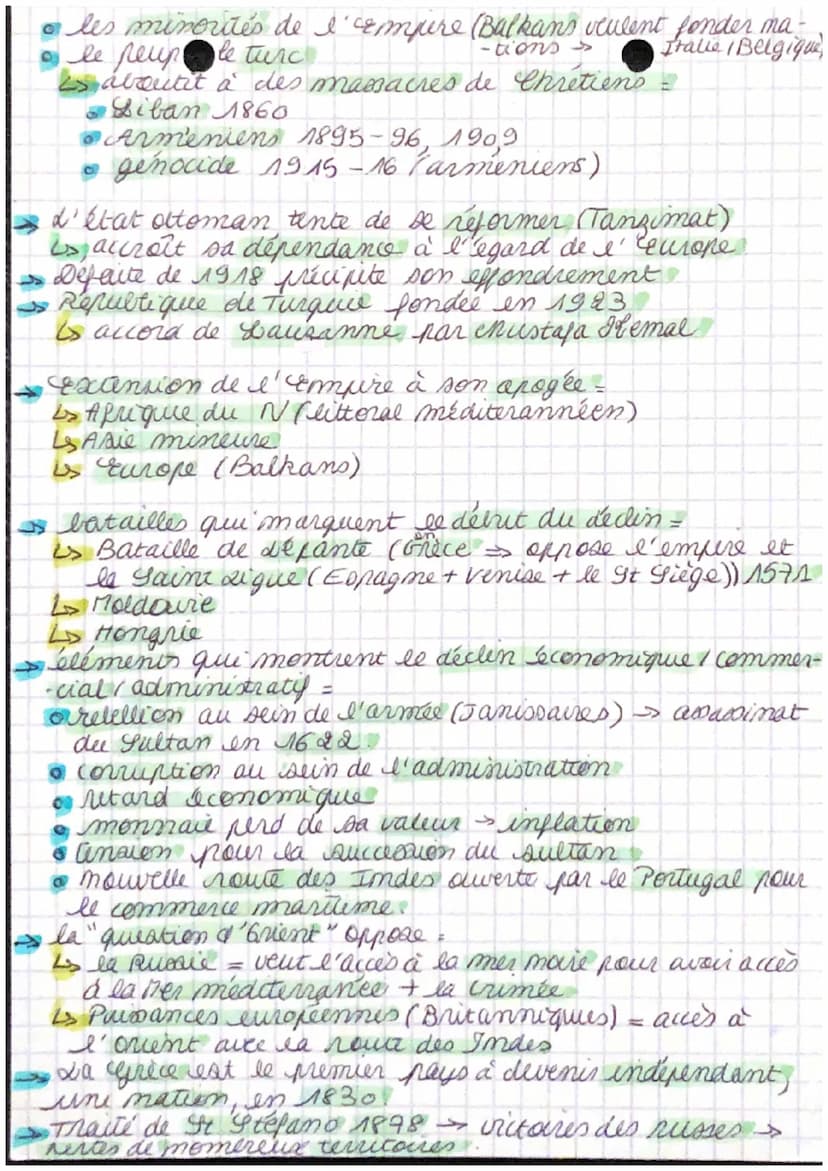 • les minorités de l'empire (Balkans veulent fonder na-
-tions → Italie / Belgique)
• le peuple turc
↳ aboutit à des massacres de Chrétiens =
• Liban 1860
• Arméniens 1895-96, 1909
• génocide 1915-16 (arméniens)
→ L'état ottoman tente de se réformer (Tanzimat)
↳ accroît sa dépendance à l'égard de l'Europe
→ Défaite de 1918 précipite son effondrement
→ République de Turquie fondée en 1923
↳ accord de Lausanne par Mustafa Kemal
→ Extension de l'Empire à son apogée =
↳ Afrique du N (littoral méditerannéen)
↳ Asie mineure
↳ Europe (Balkans)
→ batailles qui marquent le début du déclin =
↳ Bataille de Lépante (en Grèce ⇒ oppose l'empire et
la Saint Ligue (Espagne + Venise + le St Siège)) 1571
↳ Moldavie
↳ Hongrie
→ éléments qui montrent le déclin économique / commer-
-cial / administratif =
• rebellion au sein de l'armée (Janissaires) → assassinat
du Sultan en 1622.
• corruption au sein de l'administration
• retard économique
• monnaie perd de sa valeur → inflation
• tension pour la succession du sultan
• nouvelle route des Indes ouverte par le Portugal pour
le commerce maritime.
→ la "question d'Orient" oppose :
↳ la Russie = veut l'accès à la mer noire pour avoir accès
à la Mer méditerranée + la Crimée
↳ Puissances européennes (Britanniques) = accès à
l'orient avec la route des Indes
→ La Grèce est le premier pays à devenir indépendant,
une nation, en 1830
→ Traité de St Stéfano 1878 → victoires des russes →
pertes de nomereux territoires.